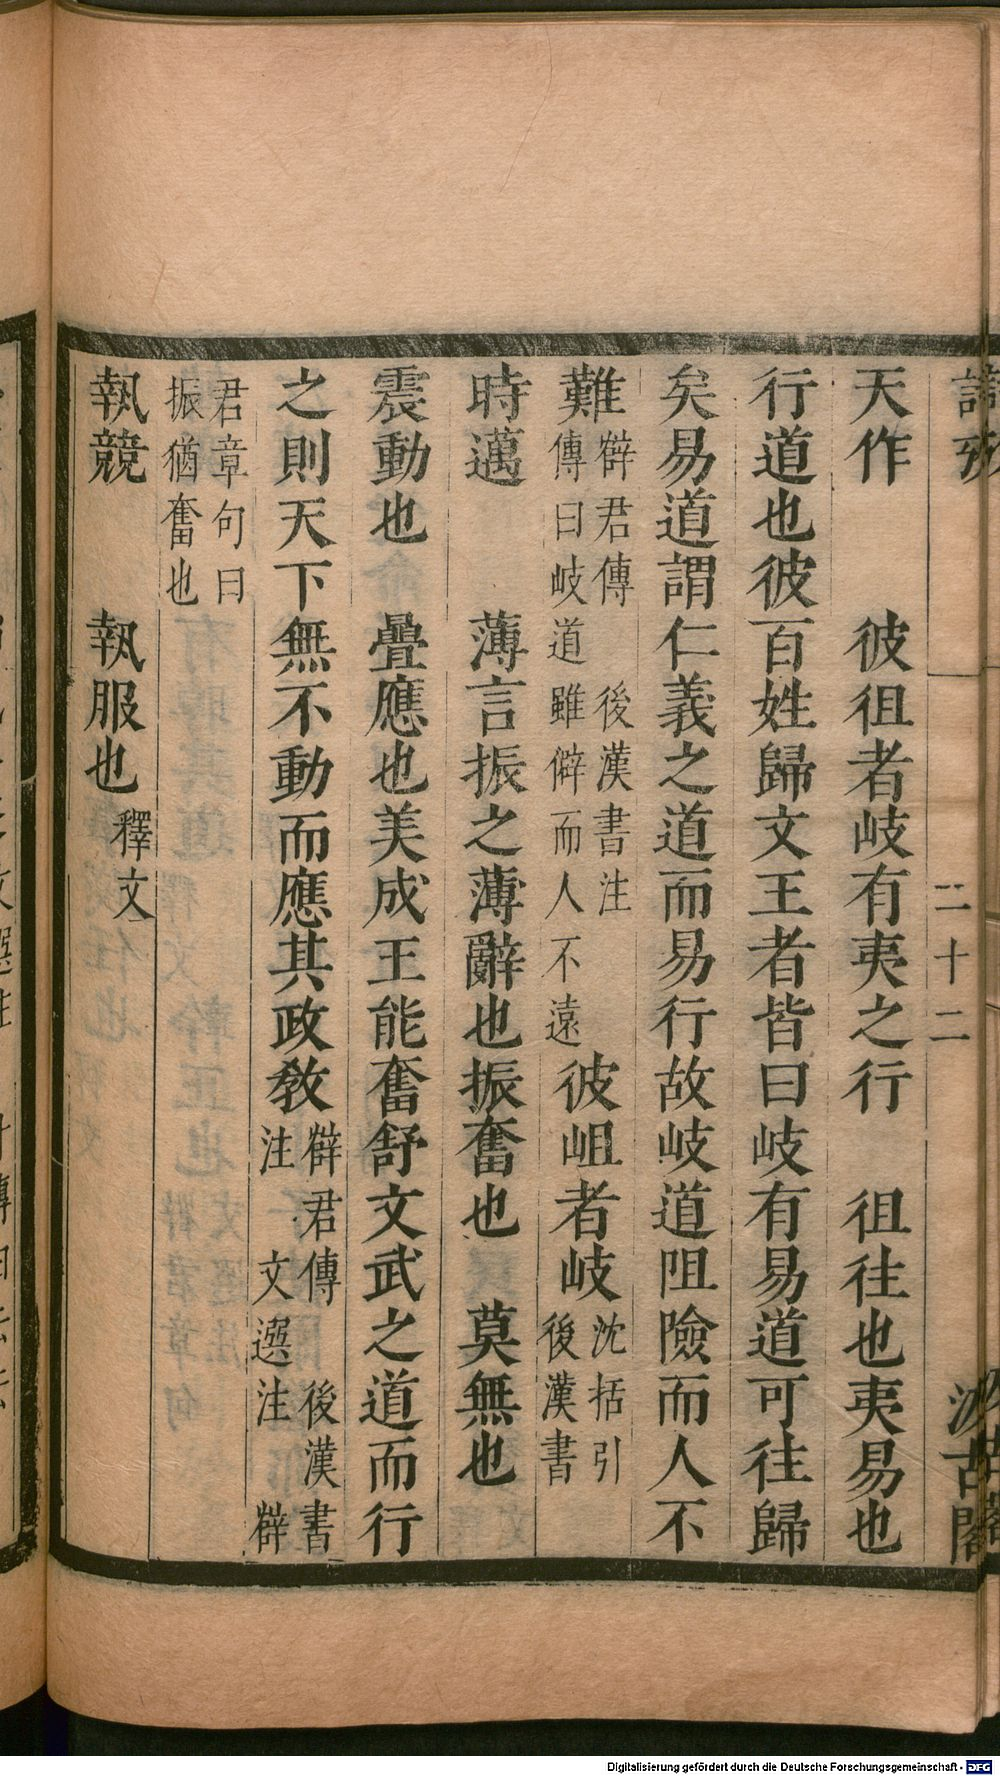 詩攷
二十二
汲古閣
天作　彼徂者岐有夷之行　徂往也夷易也
行道也彼百姓歸文王者皆曰岐有易道可往歸
矣易道謂仁義之道而易行故岐道阻險而人不
難
薛君傳　後漢書注
傳曰岐道雖僻而人不遠
彼岨者岐
沈括引
後漢書
時邁　薄言振之薄辭也振奮也　莫無也
震動也　疊應也美成王能奮舒文武之道而行
之則天下無不動而應其政教
薛君傳　後漢書
注　文選注　薛
君章句曰
振猶奮也
執競　執服也
釋文
Digitalisierung gefördert durch die Deutsche Forschungsgemeinschaft - DFG